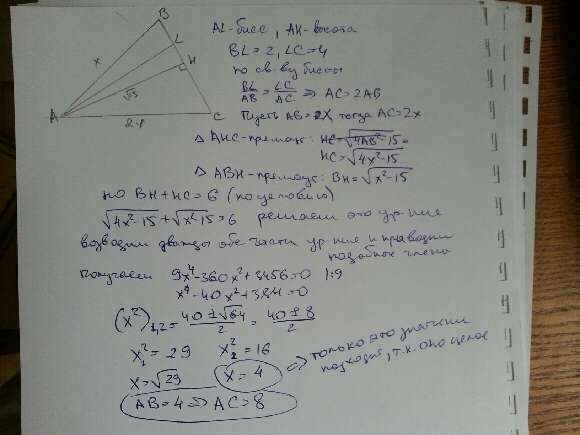 B
L
H
x
√15
A
C
AL-бисс, AH-высота
BL=2, LC=4
по св.ву биссы
BL/AB = LC/AC ⇒ AC=2AB
Пусть AB=x, тогда AC=2x
△ AHC-прямоуг: HC=√4AB²-15=
HC=√4x²-15
△ ABH-прямоуг: BH=√x²-15
но BH+HC=6 (по условию)
√4x²-15+√x²-15=6 решаем это ур-ние
возводим дважды обе части ур-ние и приводим
подобные члены
Получаем 9x⁴-360x²+3456=0 |:9
x⁴-40x²+384=0
(x²)1,2=40±√64/2=40±8/2
x₁²=29 x₂²=16
x=√29 x=4 ⇒ только это значение
подходит, т.к. оно целое
AB=4⇒AC=8